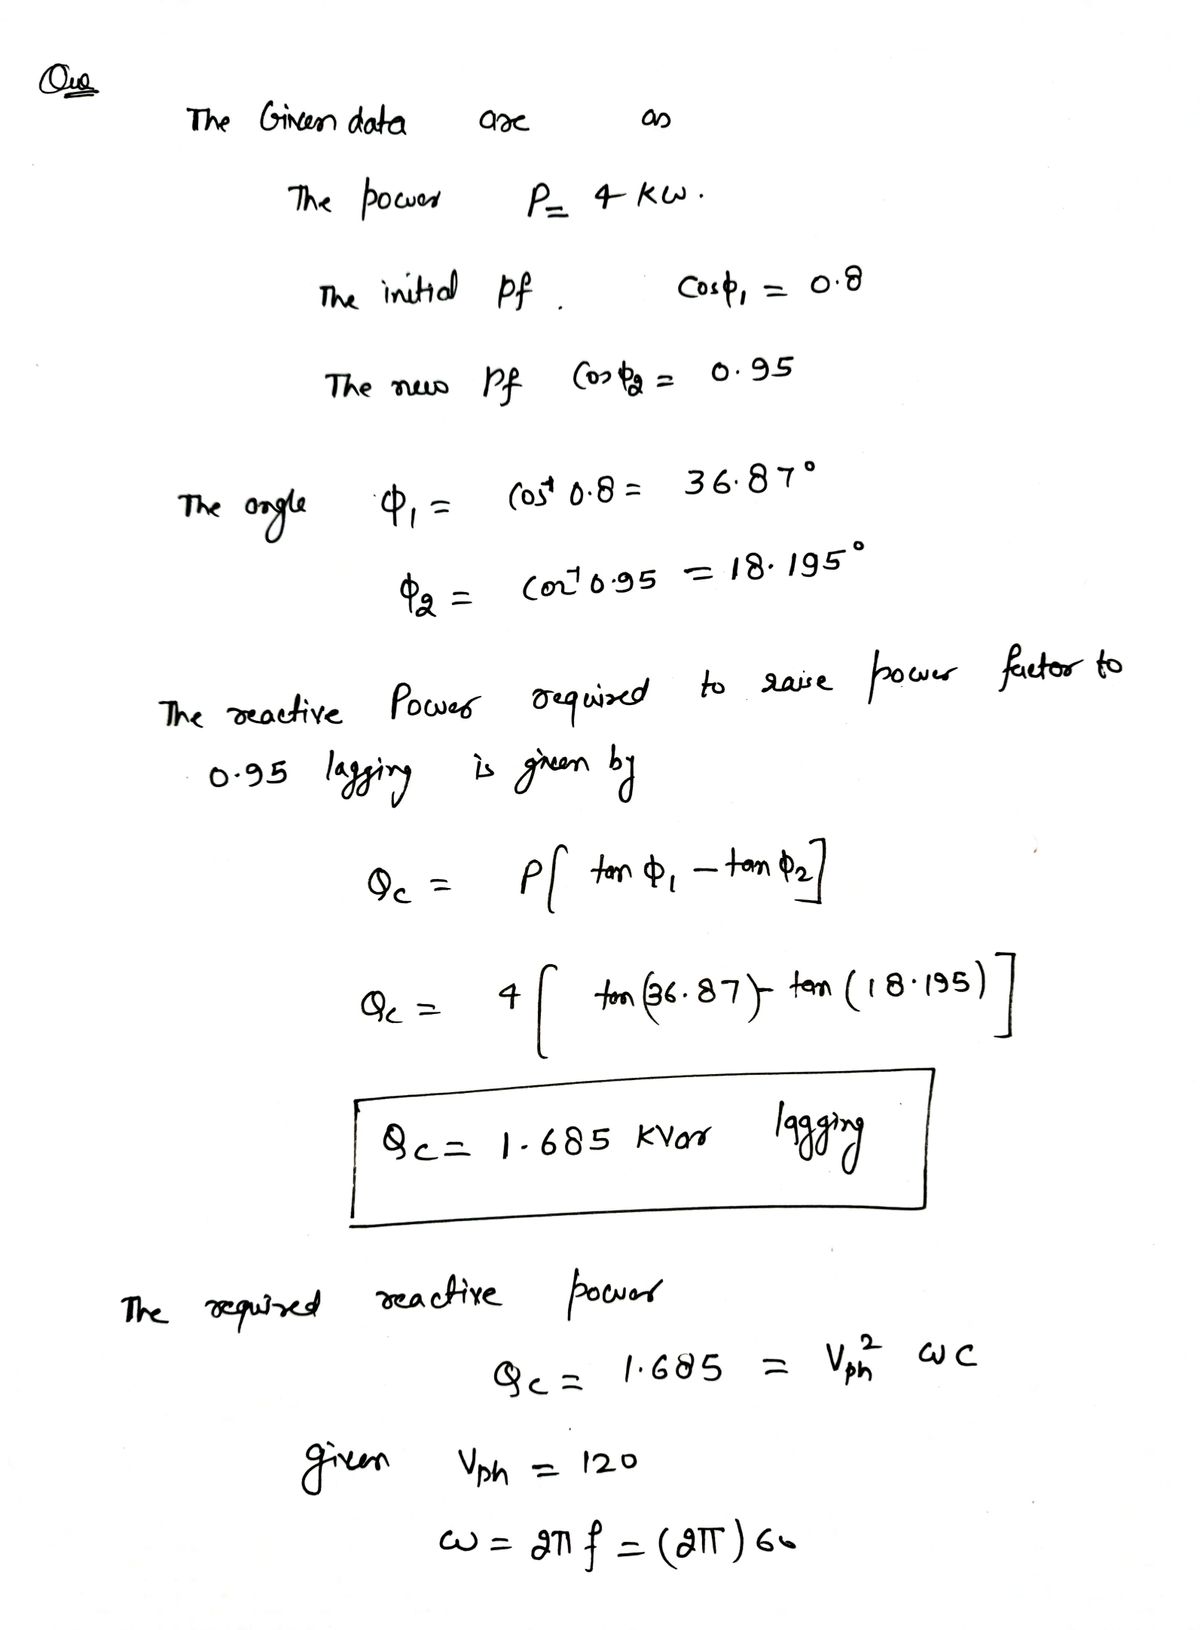 Que
The Given data are as
The power P = 4 kW.
The initial pf. cosϕ₁ = 0.8
The new pf cosϕ₂ = 0.95
The angle ϕ₁ = cos⁻¹ 0.8 = 36.87°
ϕ₂ = cos⁻¹ 0.95 = 18.195°
The reactive Power required to raise power factor to
0.95 lagging is given by
Qc = P[ tan ϕ₁ – tan ϕ₂]
Qc = 4[ tan(36.87) – tan (18.195)]
Qc = 1.685 KVar lagging
The required reactive power
Qc = 1.685 = Vph² ωC
given Vph = 120
ω = 2π f = (2π) 60